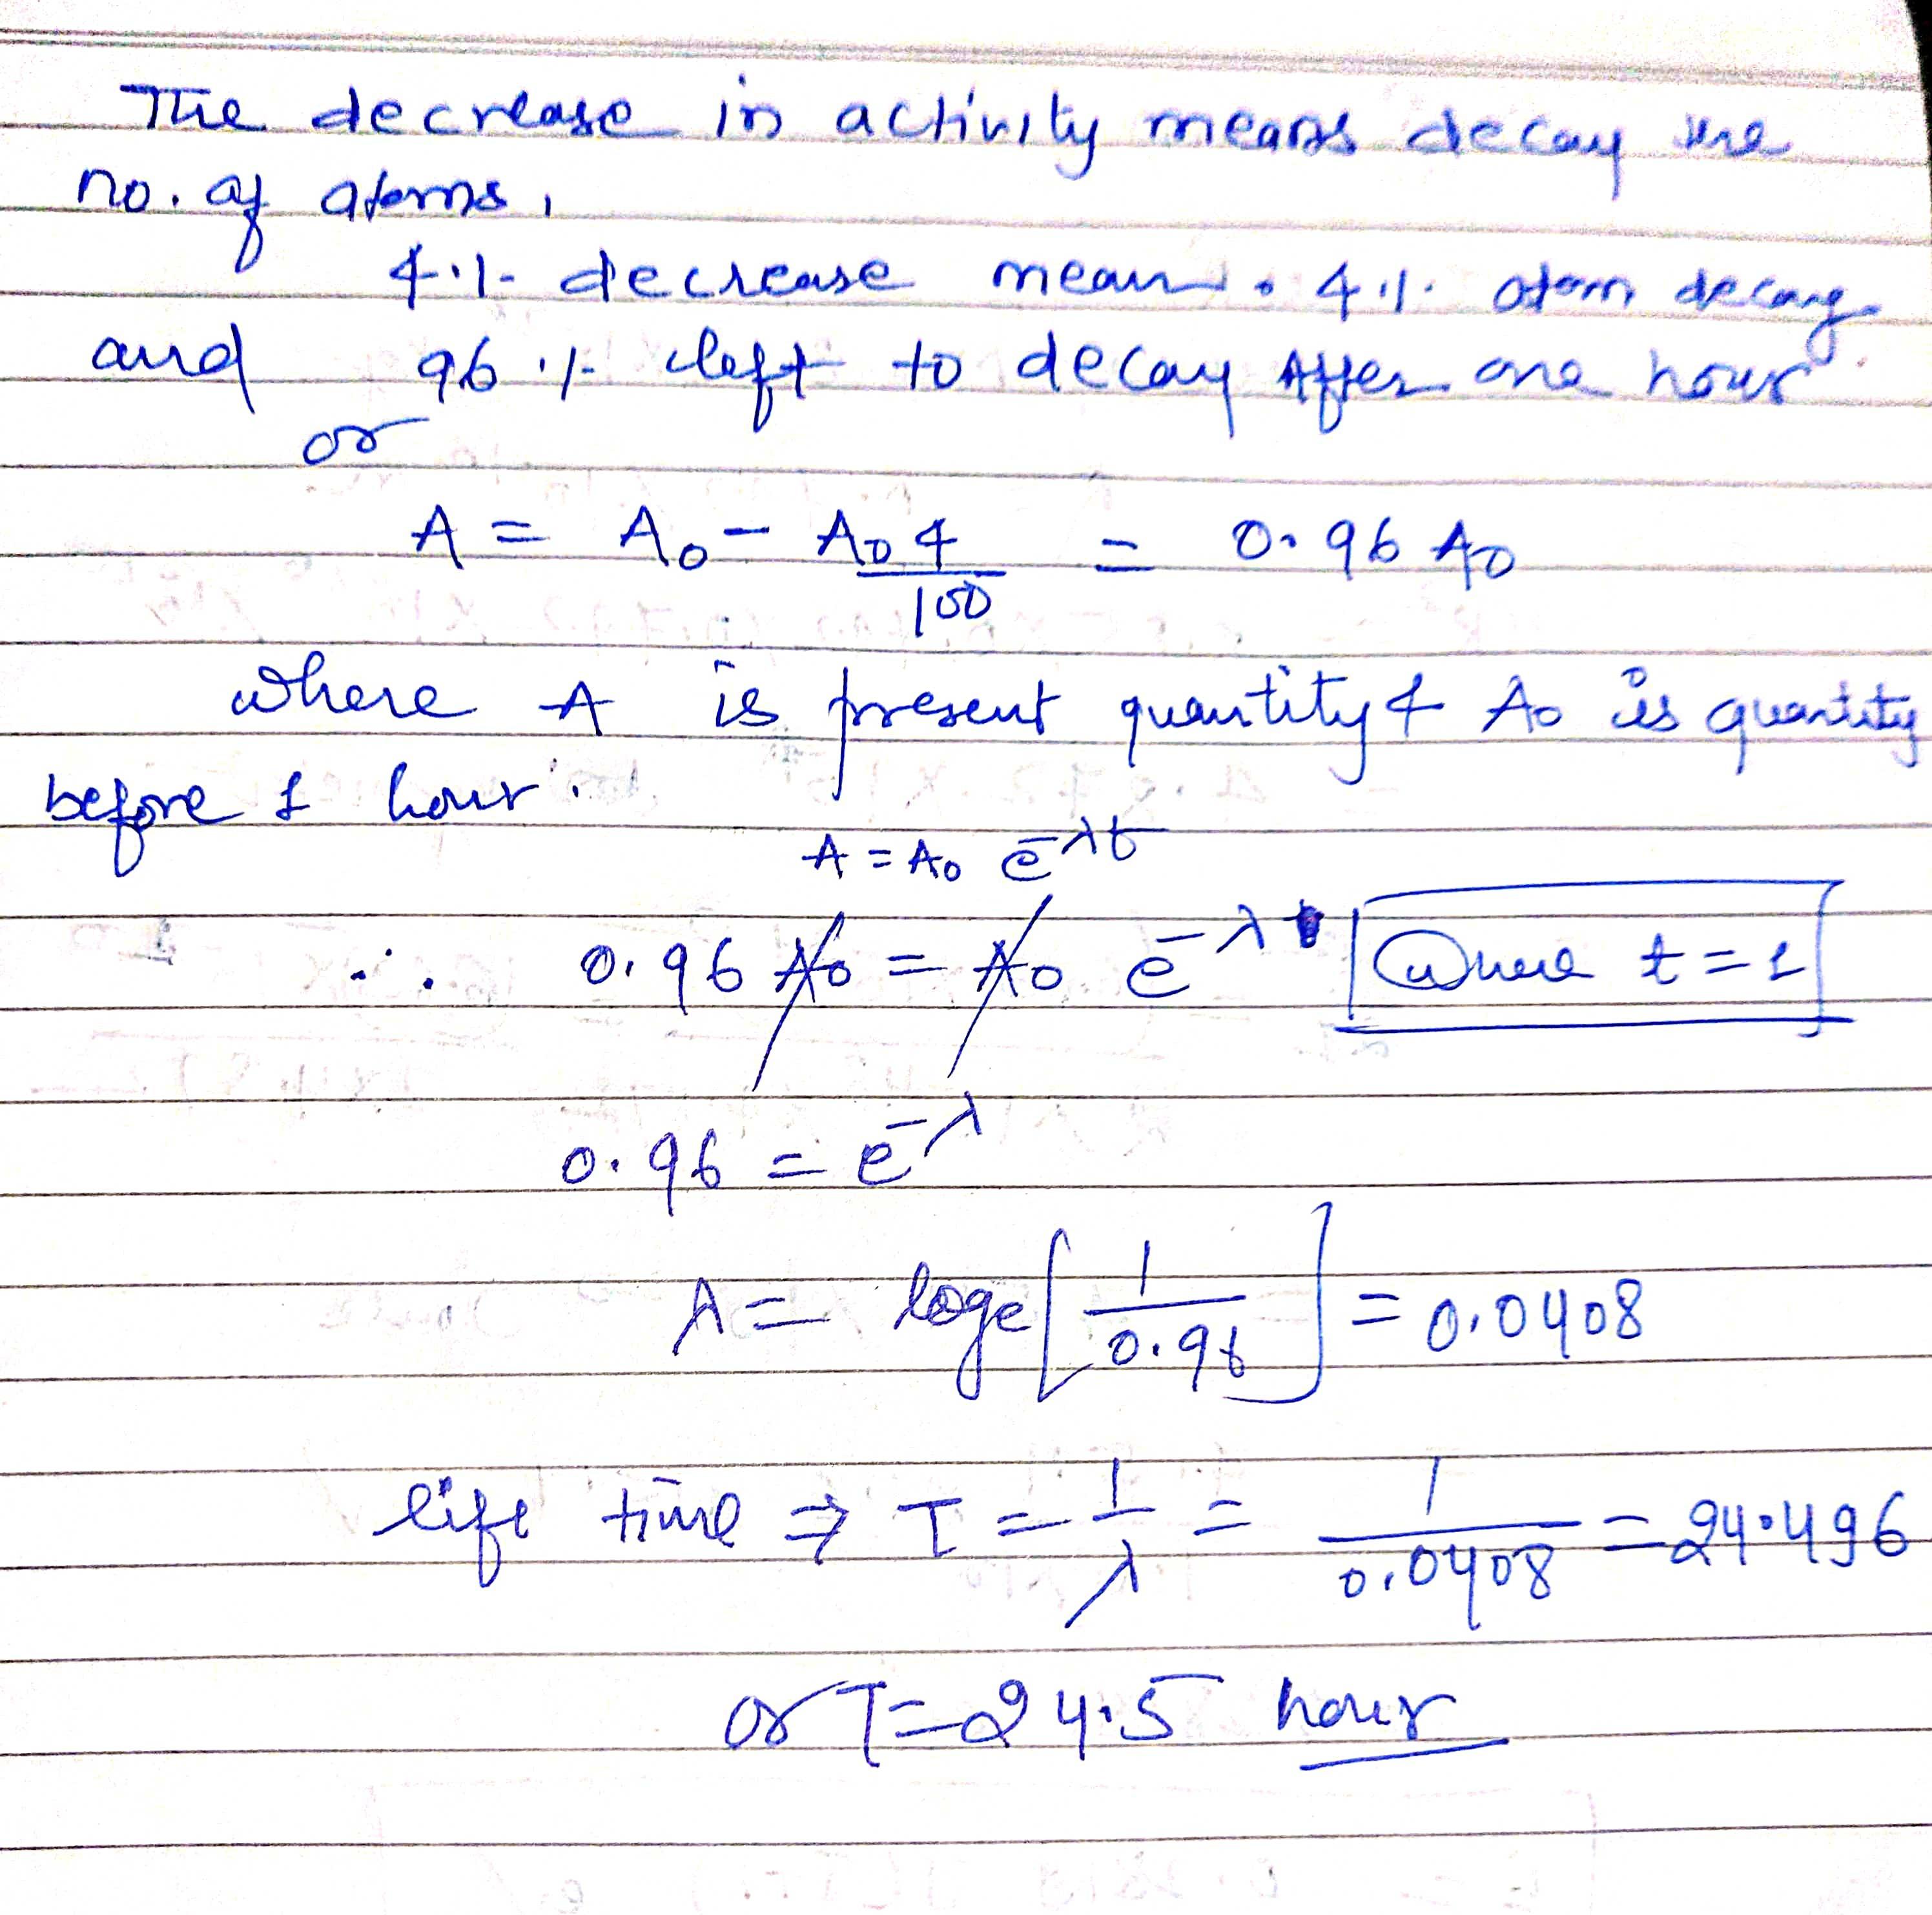 The decrease in activity means decay the
no. of atoms,
4% decrease mean. 4% atom decay
and 96 % left to decay After one hour
or
A = A₀ - A₀ 4/100 = 0.96 A₀
where A is present quantity & A₀ is quantity
before 1 hour.
A = A₀ e^-λt
∴ 0.96 A₀ = A₀ e^-λ Where t = 1
0.96 = e^-λ
λ = loge [1/0.96] = 0.0408
life time ⇒ T = 1/λ = 1/0.0408 = 24.496
or T = 24.5 hour